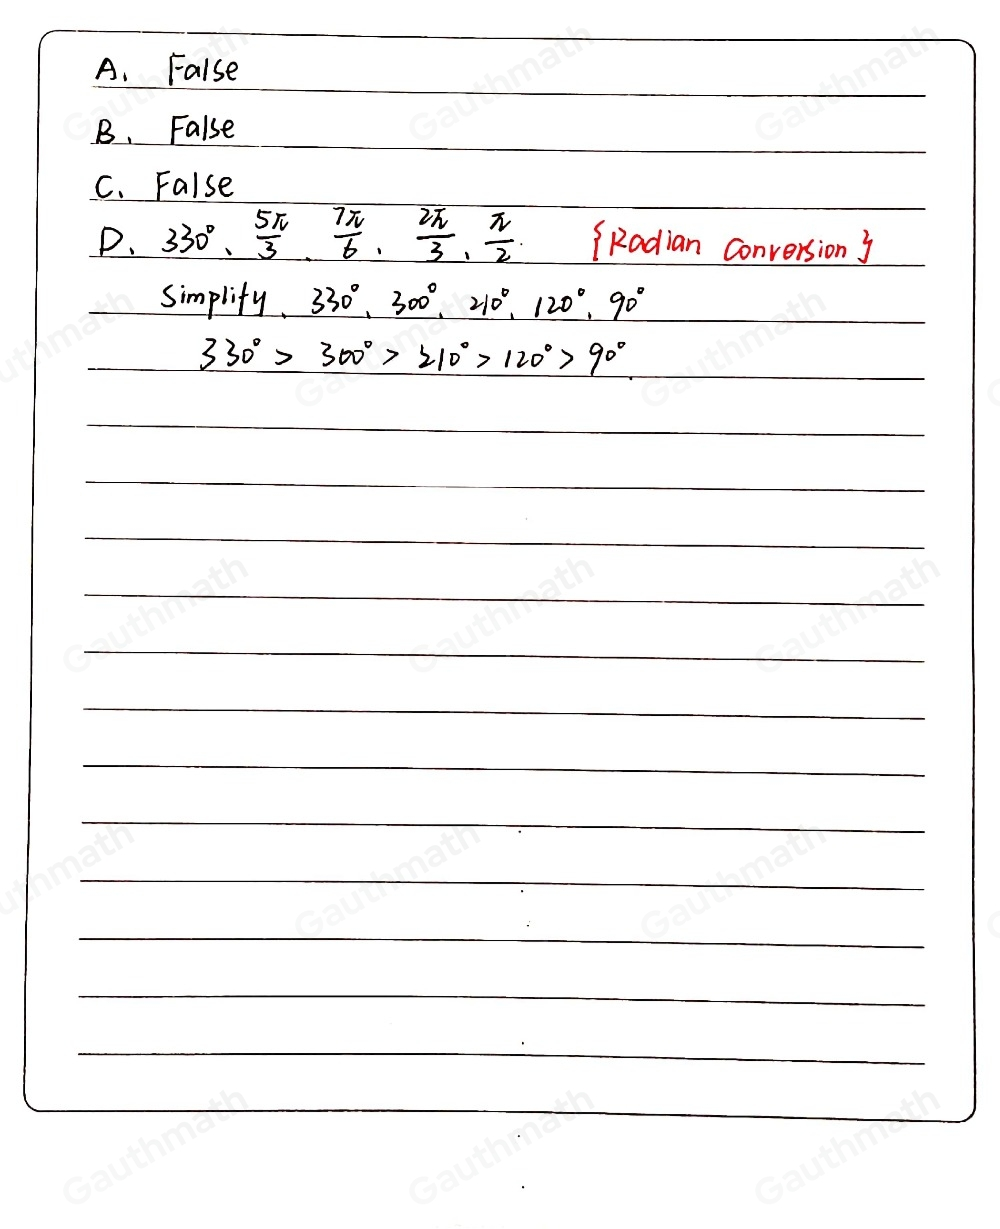 A. False
B. False
C. False
D. 330°、5π/3、7π/6、2π/3、π/2. {Radian Conversion}
Simplify、330°、300°、210°、120°、90°
330° > 300° > 210° > 120° > 90°.
Gauthmath